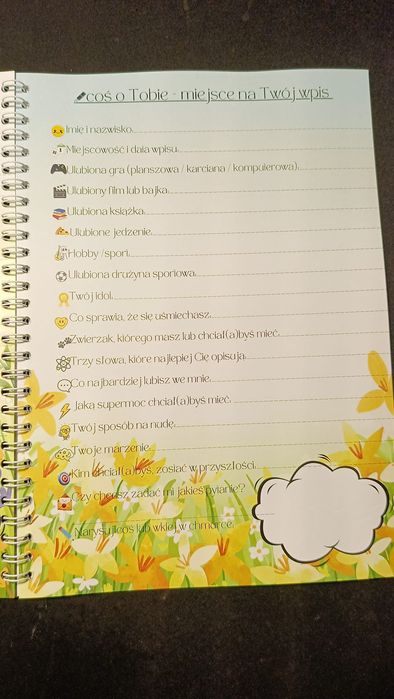 coś o Tobie - miejsce na Twój wpis
Imię i nazwisko
Miejscowość i data wpisu
Ulubiona gra (planszowa / karciana / komputerowa)
Ulubiony film lub bajka
Ulubiona książka
Ulubione jedzenie
Hobby /sport
Ulubiona drużyna sportowa
Twój idol
Co sprawia, że się uśmiechasz
Zwierzak, którego masz lub chciał(a)byś mieć
Trzy słowa, które najlepiej Cię opisują
Co najbardziej lubisz we mnie
Jaką supermoc chciał(a)byś mieć
Twój sposób na nudę
Twoje marzenie
Kim chciał(a)byś zostać w przyszłości
Czy chcesz zadać mi jakieś pytanie?
Narysuj coś lub wklej w chmurce